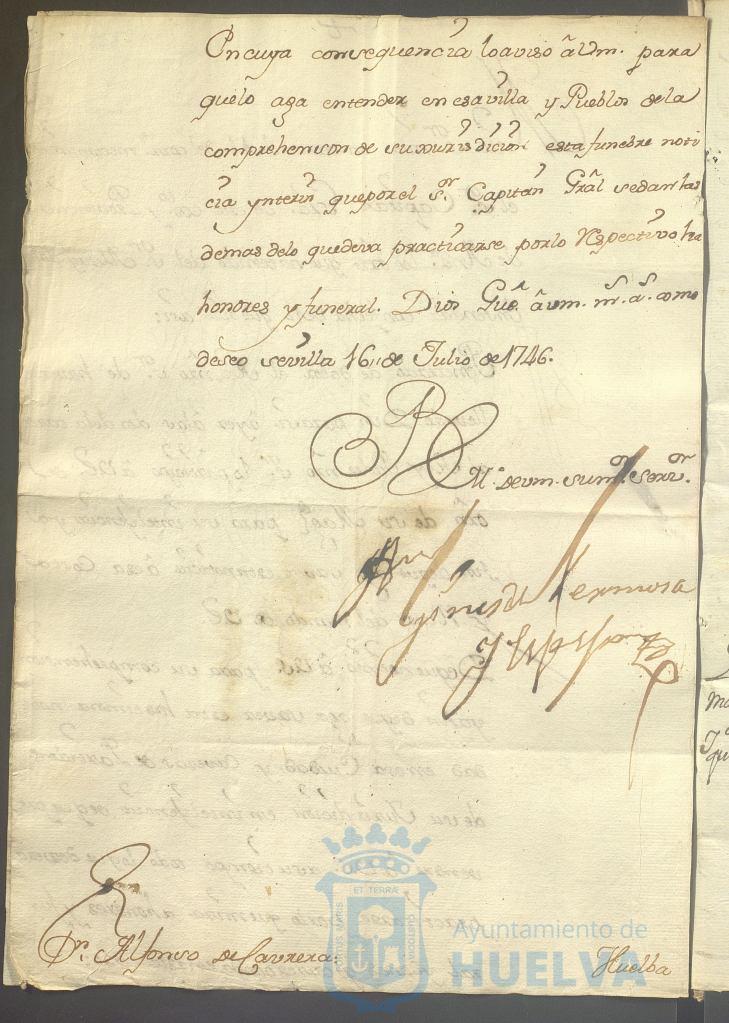 En cuya consequencia lo aviso â Vm. para
quelô aga entender en esa villa y Pueblos de la
comprehension de su Jurisdicion esta funebre noti
cia ynterin que por el Sr. Capitan Grâl se dan las
demas delo que deva practicarse por lo respectivo ha
honores y funeral. Dios Gue. â vm. ms. as. como
deseo sevilla 16,, de Julio de 1746.
BLM. de vm. su mr. servr.
Gines de Hermosa
y Espejo
Dn. Alfonso de Cavrera.
Huelba
PORTUS MARIS ET TERRÆ CUSTODIA
Ayuntamiento de
HUELVA